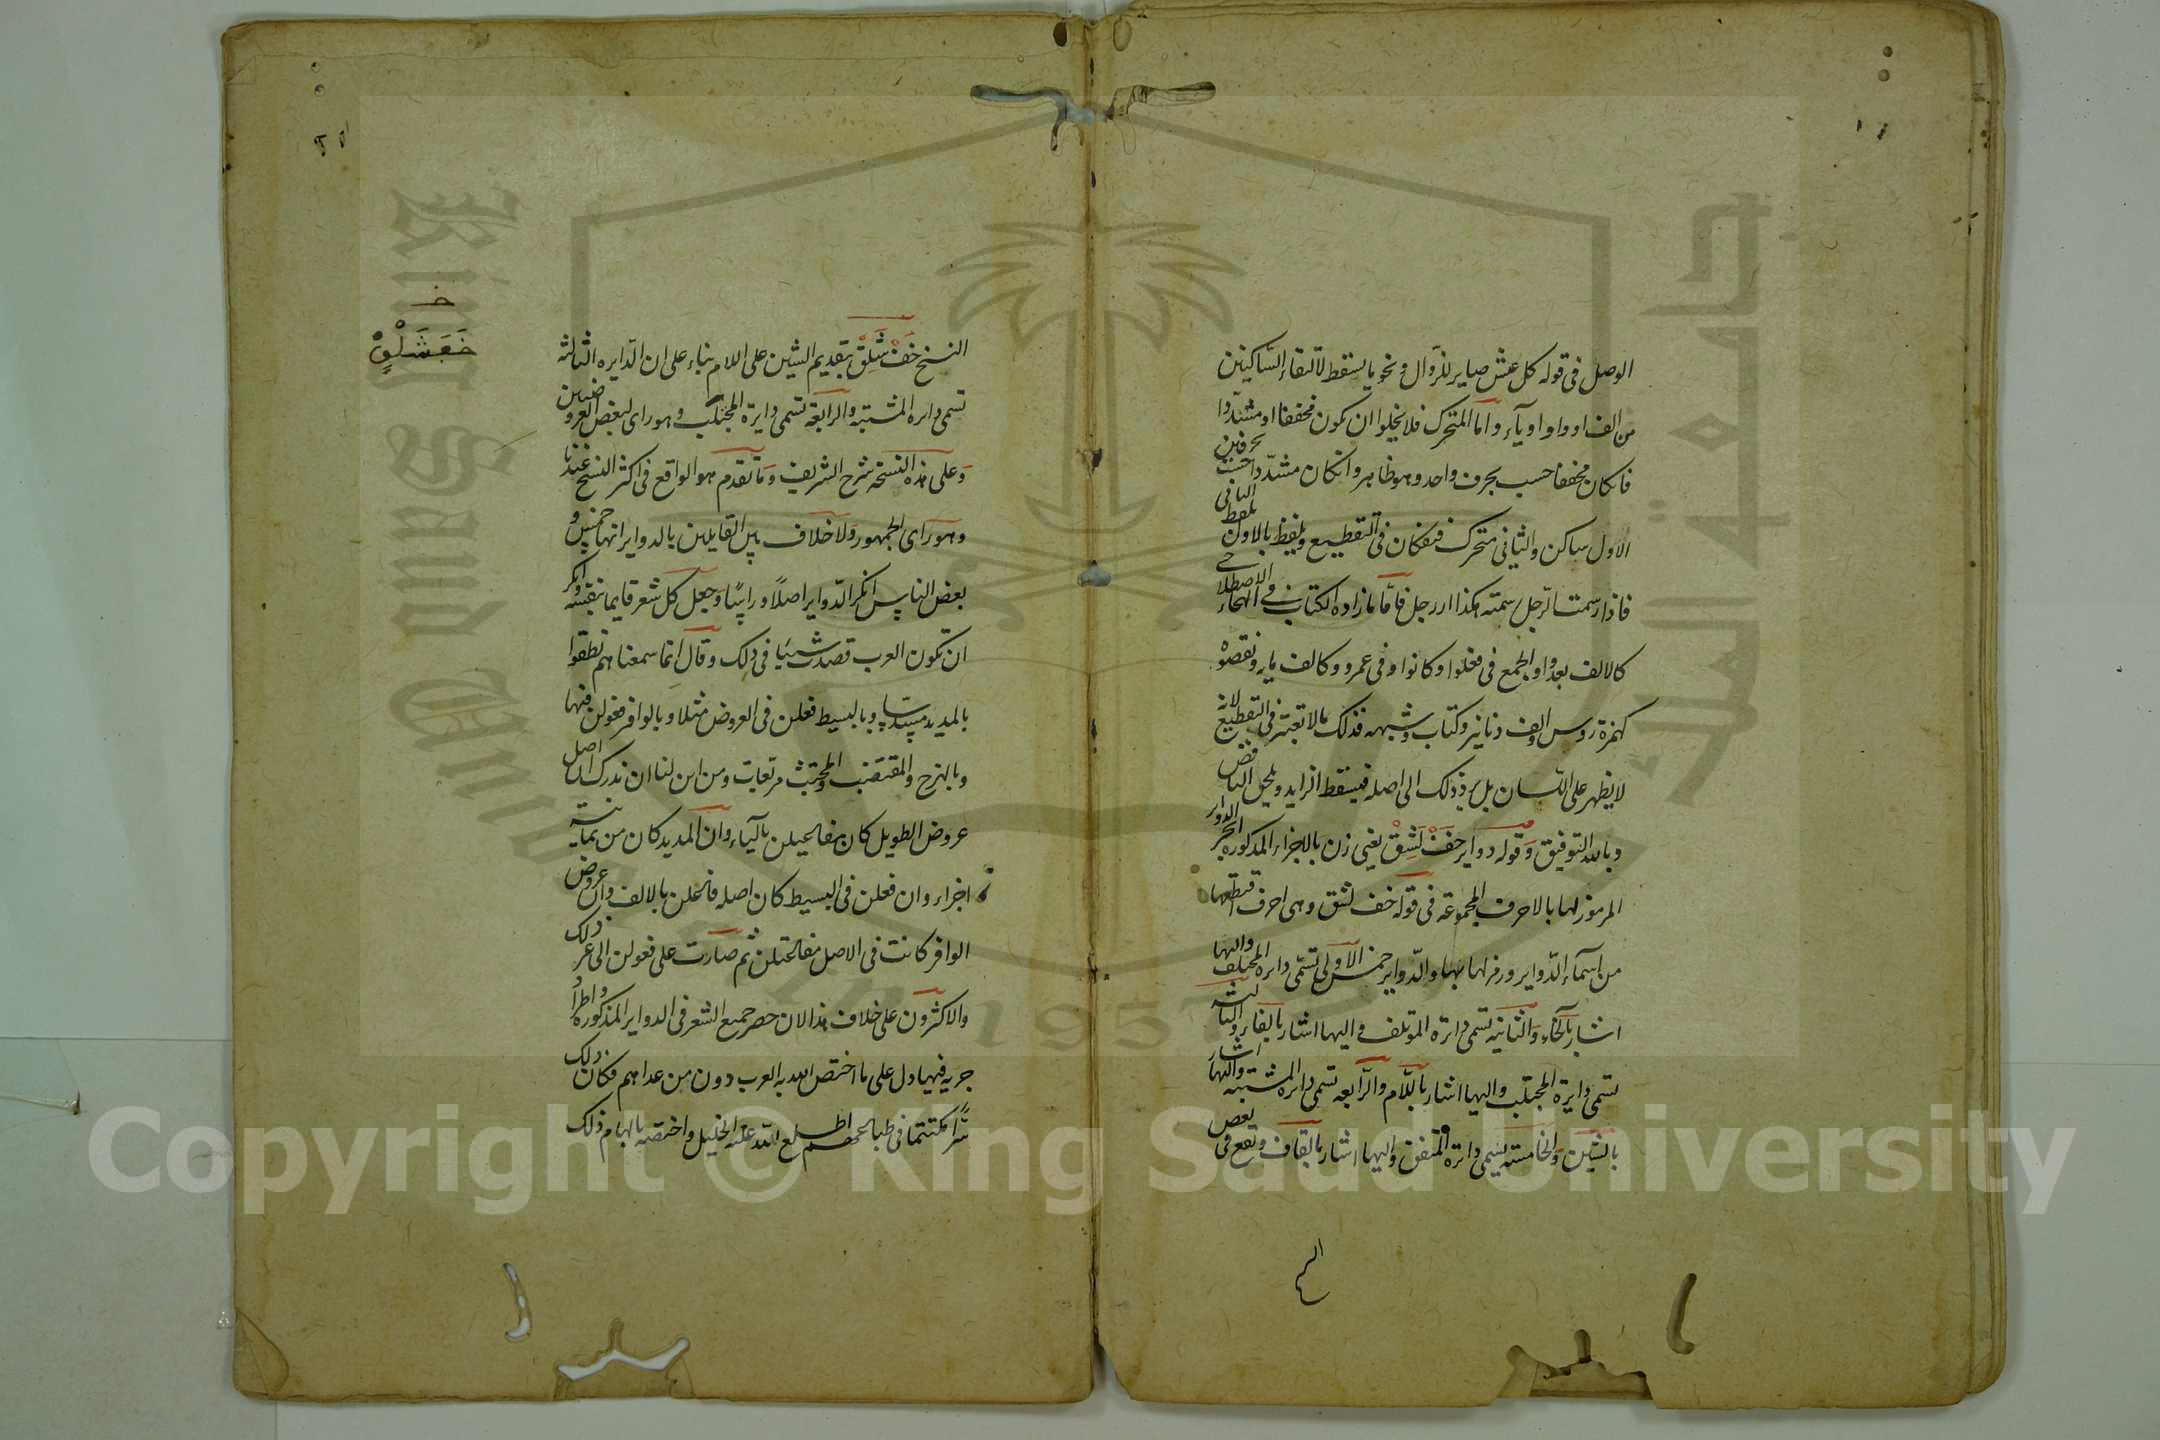 الوصل فى قوله كل عيش صاير للزوال ونحو يا يسقط لالتقاء الساكنين
من الف او واو او ياء واما المتحرك فلا يخلوا ان يكون مخففا او مشددا
فان كان مخففا حسب بحرف واحد وهو ظاهر وانكان مشددا حسب بحرفين
الاول ساكن والثانى متحرك فيفكان فى التقطيع ويلفظ بالاول
فاذا رسمت الرجل رسمته هكذا اررجل فاما ما زاده الكتاب فى الهجاء
كالالف بعد واو الجمع فى فعلوا وكانوا وفى عمرو وكالف مايه ونقصوه
كهمزة روس والف دنانير وكتاب وشبهه فذلك مالا تعتبر فى التقطيع لانه
لا يظهر على اللسان بل يرد ذلك الى اصله فيسقط الزايد ويلحق الناقص
وبالله التوفيق وقوله دواير خفْ لَشِقْ يعنى زن بالاجزاء المذكوره الدواير
المرموز لها بالاحرف المجموعة فى قوله خف لشق وهى احرف اقتطعها
من اسماء الدواير ورمز لها بها والدواير خمس الاولى تسمى دايرة المختلف واليها
اشار بالخاء والثانيه تسمى دايرة المؤتلف واليها اشار بالفاء والثالثة
تسمى دايرة المجتلب واليها اشار باللام والرابعه تسمى دايرة المشتبه واليها اشار
بالشين والخامسة تسمى دايرة المتفق واليها اشار بالقاف وتقع فى بعض
النسخ خفْ شَلِقْ بتقديم الشين على اللام بناء على ان الدايره الثالثه
تسمى دايره المشتبه والرابعة تسمى دايرة المجتلب وهو راى لبعض العروضيين
وعلى هذه النسخه شرح الشريف وما تقدم هو الواقع فى اكثر النسخ عندنا
وهو راى الجمهور ولا خلاف بين القايلين بالدواير انها خمس و
بعض الناس انكر الدواير اصلا وراسا وجعل كل شعر قايما بنفسه وانكر
ان تكون العرب قصدت شيا فى ذلك وقال انما سمعناهم نطقوا
بالمديد مسدسا وبالبسيط فعلن فى العروض مثلا وبالوافر فعولن فيها
وبالهزج والمقتضب والمجتث مربعات ومن اين لنا ان ندرك ان اصل
عروض الطويل كان مفاعيلن بالياء وان المديد كان من ثمانية
اجزاء وان فعلن فى البسيط كان اصله فاعلن بالالف وان عروض
الوافر كانت فى الاصل مفاعلتن ثم صارت على فعولن الى غير ذلك
والاكثرون على خلاف هذا لان حصر جميع الشعر فى الدواير المذكورة واطراد
جريه فيها دل على ما اختص الله به العرب دون من عداهم فكان ذلك
سرا مكتتما فى طباعهم اطلع الله عليه الخليل واختصه بالهام ذلك
خـ
خَفَشَلْقٍ
King Saud University
1957
Copyright © King Saud University